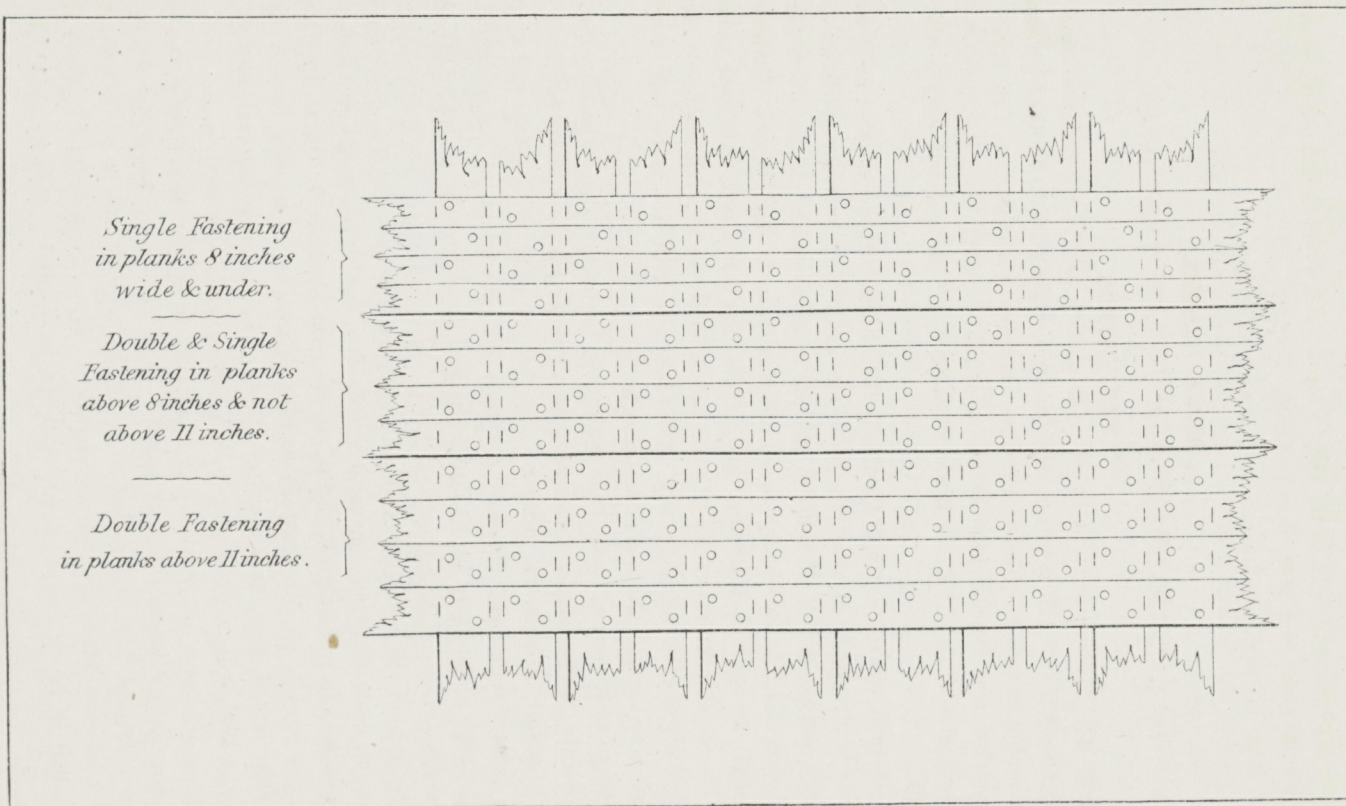 Single Fastening
in planks 8 inches
wide & under.
Double & Single
Fastening in planks
above 8 inches & not
above 11 inches.
Double Fastening
in planks above 11 inches.